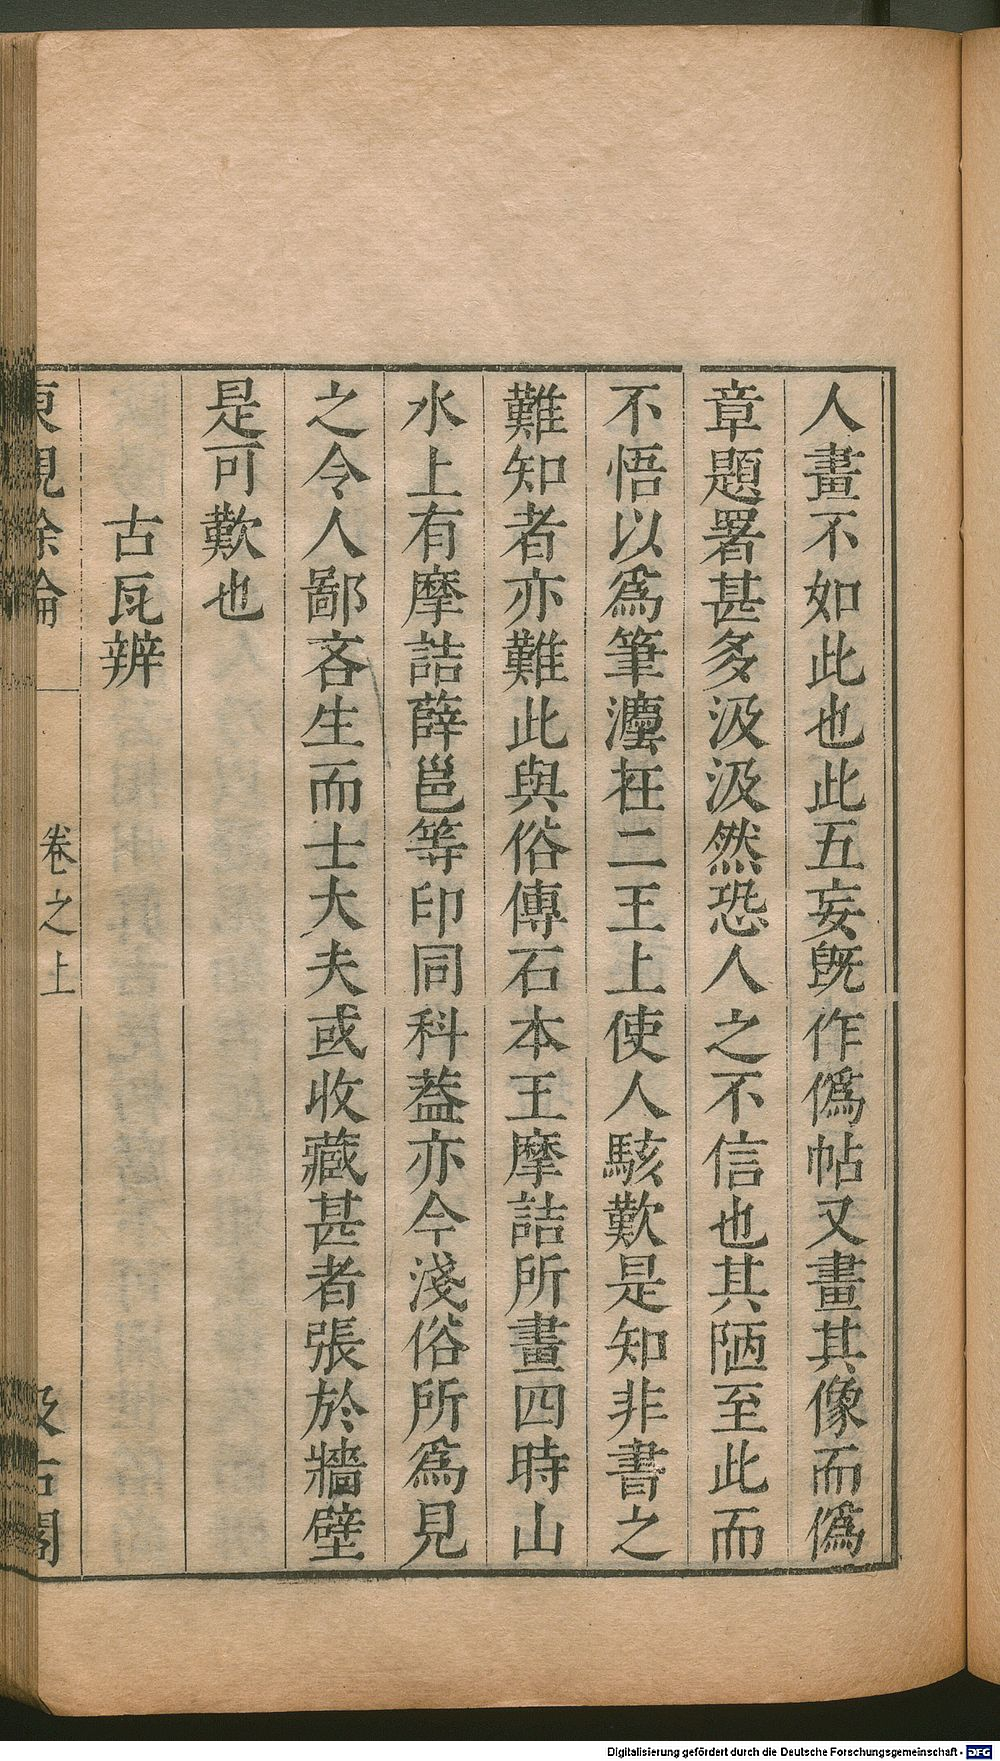 人畫不如此也此五妄旣作僞帖又畫其像而僞
章題署甚多汲汲然恐人之不信也其陋至此而
不悟以爲筆灋在二王上使人駭歎是知非書之
難知者亦難此與俗傳石本王摩詰所畫四時山
水上有摩詰薛邕等印同科葢亦今淺俗所爲見
之令人鄙吝生而士大夫或收藏甚者張於牆壁
是可歎也
古瓦辨
東觀餘論
卷之上
汲古閣
Digitalisierung gefördert durch die Deutsche Forschungsgemeinschaft - DFG